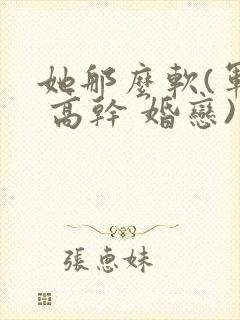 她那麼軟(軍
高幹 婚戀)
張惠妹